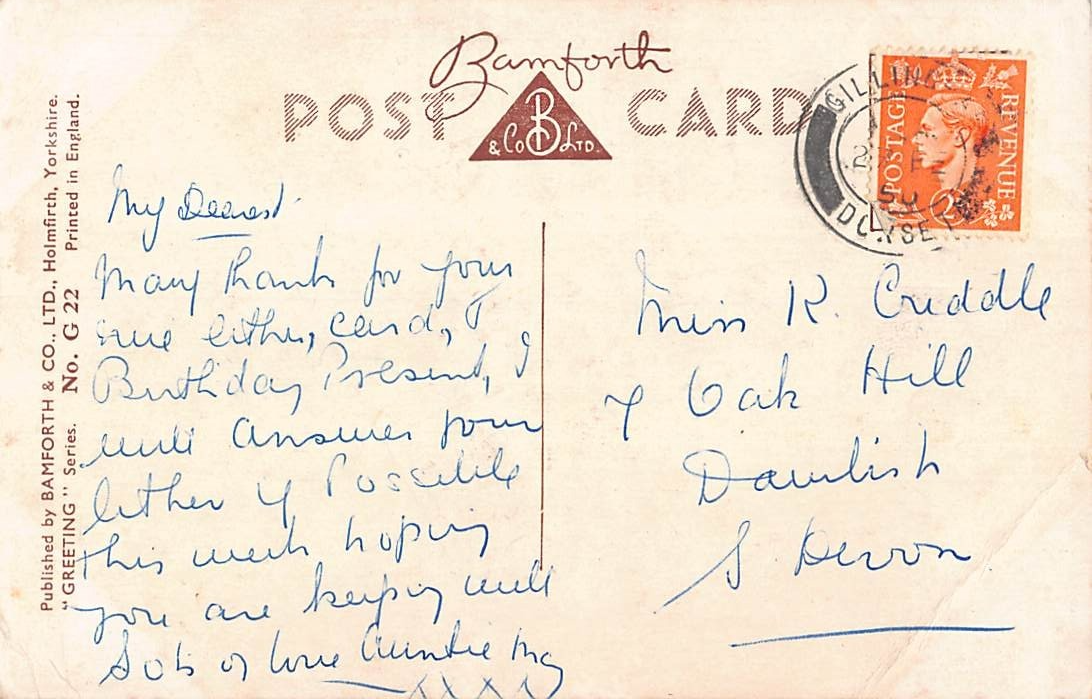 Bamforth
POST CARD
B
& Co LTD.
Published by BAMFORTH & CO., LTD., Holmfirth, Yorkshire.
"GREETING" Series. No. G 22 Printed in England.
GILLING
DORSET
50
POSTAGE
REVENUE
2
My Dearest
Many thanks for your
nice letter, card, &
Birthday Present, I
will answer your
letter if Possible
this week hoping
you are keeping well
Lots of love Auntie May
XXXX
Miss R. Criddle
7 Oak Hill
Dawlish
S. Devon